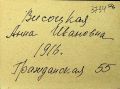 Висоцкая
Анна Ивановна
1916.
Гражданская 55